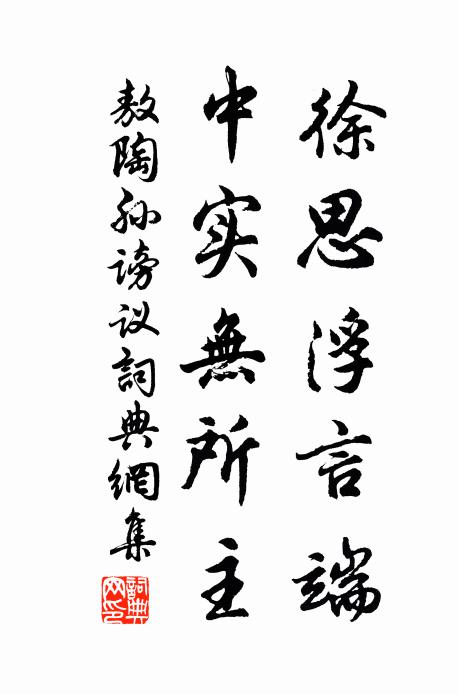 徐思浮言端
中实無所主
敖陶孙谤议詞典網集
詞典網印